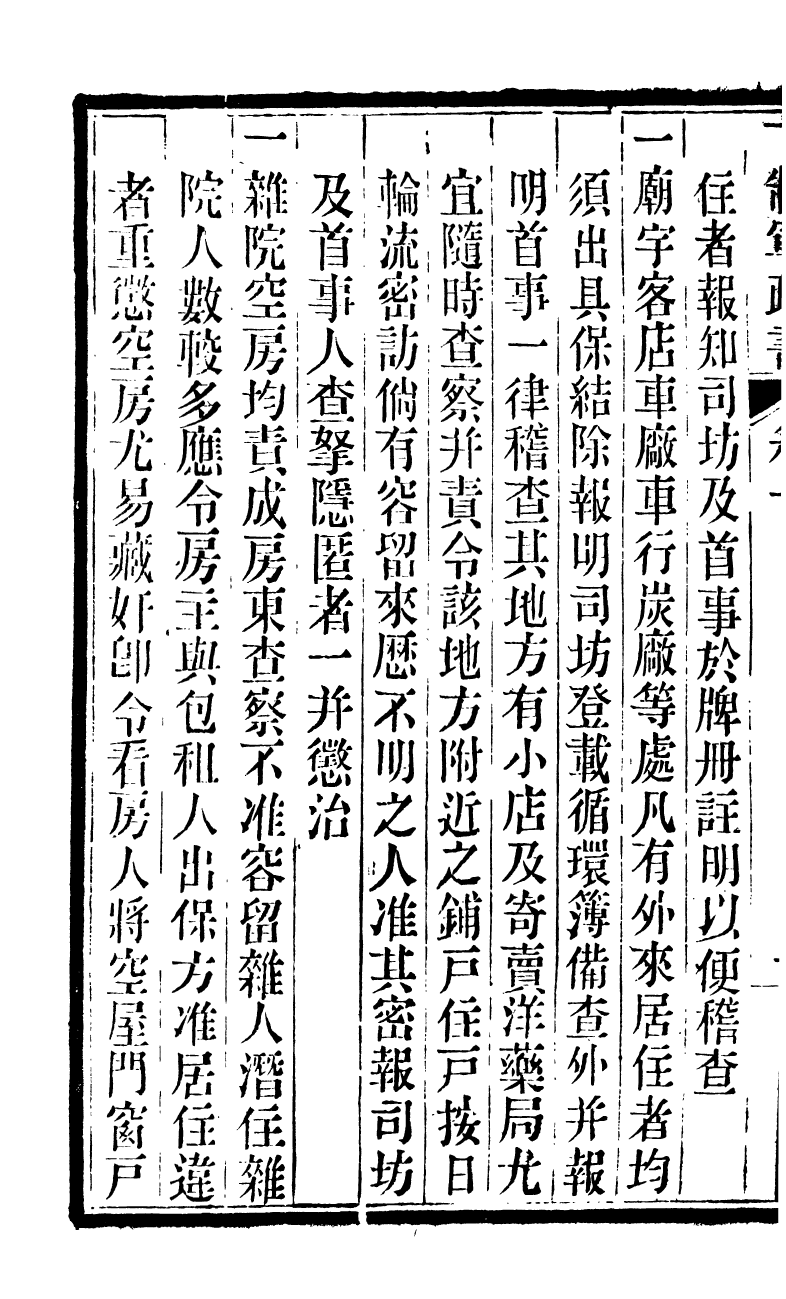 住者報知司坊及首事於牌册註明以便稽查
一廟宇客店車廠車行炭廠等處凡有外來居住者均
須出具保結除報明司坊登載循環簿備查外并報
明首事一律稽查其地方有小店及寄賣洋藥局尤
宜隨時查察并責令該地方附近之鋪戸住戸按日
輪流密訪倘有容留來歷不明之人准其密報司坊
及首事人查拏隱匿者一并懲治
一雜院空房均責成房東查察不准容留雜人潛住雜
院人數較多應令房主與包租人出保方准居住違
者重懲空房尤易藏奸卽令看房人將空屋門窗戸